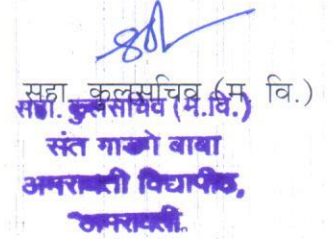 सहा. कुलसचिव (म. वि.)
सहा. कुलसचिव (म.वि.)
संत गाडगे बाबा
अमरावती विद्यापीठ,
अमरावती.